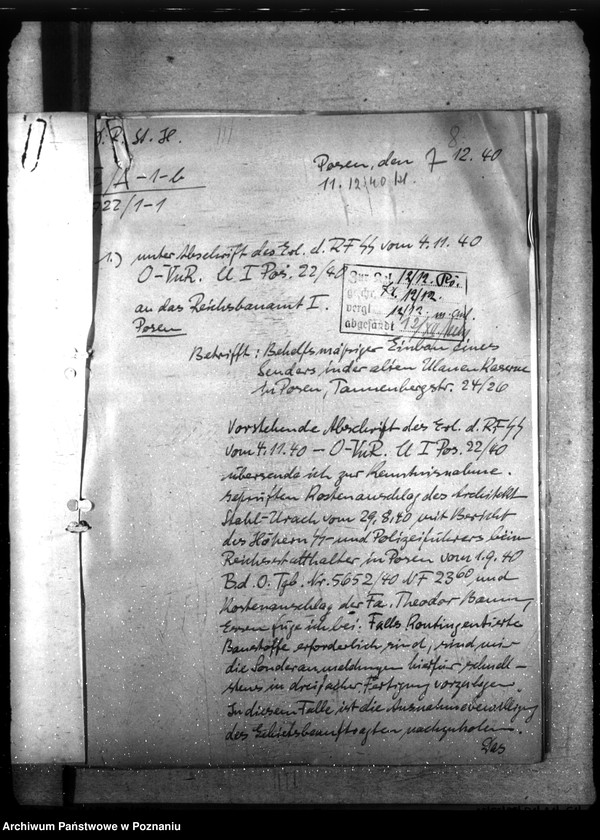 R. St. H.
/A-1-b
22/1-1
8
Posen, den 7 12.40
11. 12/40
1.) unter Abschrift des Erl. d. RFSS vom 4.11.40
O-VuR. U I Pos. 22/40
an das Reichsbauamt I.
Posen
12/12.
geschr. 12/12.
vergl. 12/12.
abgesandt 12/XII
Betrifft: Behelfsmäßiger Einbau eines
Senders in der alten Ulanen Kaserne
in Posen, Tannenbergstr. 24/26
Vorstehende Abschrift des Erl. d. RFSS
vom 4.11.40 - O-VuR. U I Pos. 22/40
übersende ich zur Kenntnisnahme.
Geprüften Kostenanschlag des Architekt
Stahl-Urach vom 29.8.40 mit Bericht
des Höhern SS- und Polizeiführers beim
Reichsstatthalter in Posen vom 1.9.40
Bd. O. Tgb. Nr. 5652/40 NF 23 60 und
Kostenanschlag der Fa. Theodor
Essen füge ich bei. Falls Kontingentierte
Baustoffe erforderlich sind, sind mir
die Sonderanmeldungen hierfür schnell-
stens in dreifacher Fertigung vorzulegen.
In diesem Falle ist die Ausnahmebewilligung
des Gebietsbeauftragten nachzuholen.
Das
Archiwum Państwowe w Poznaniu